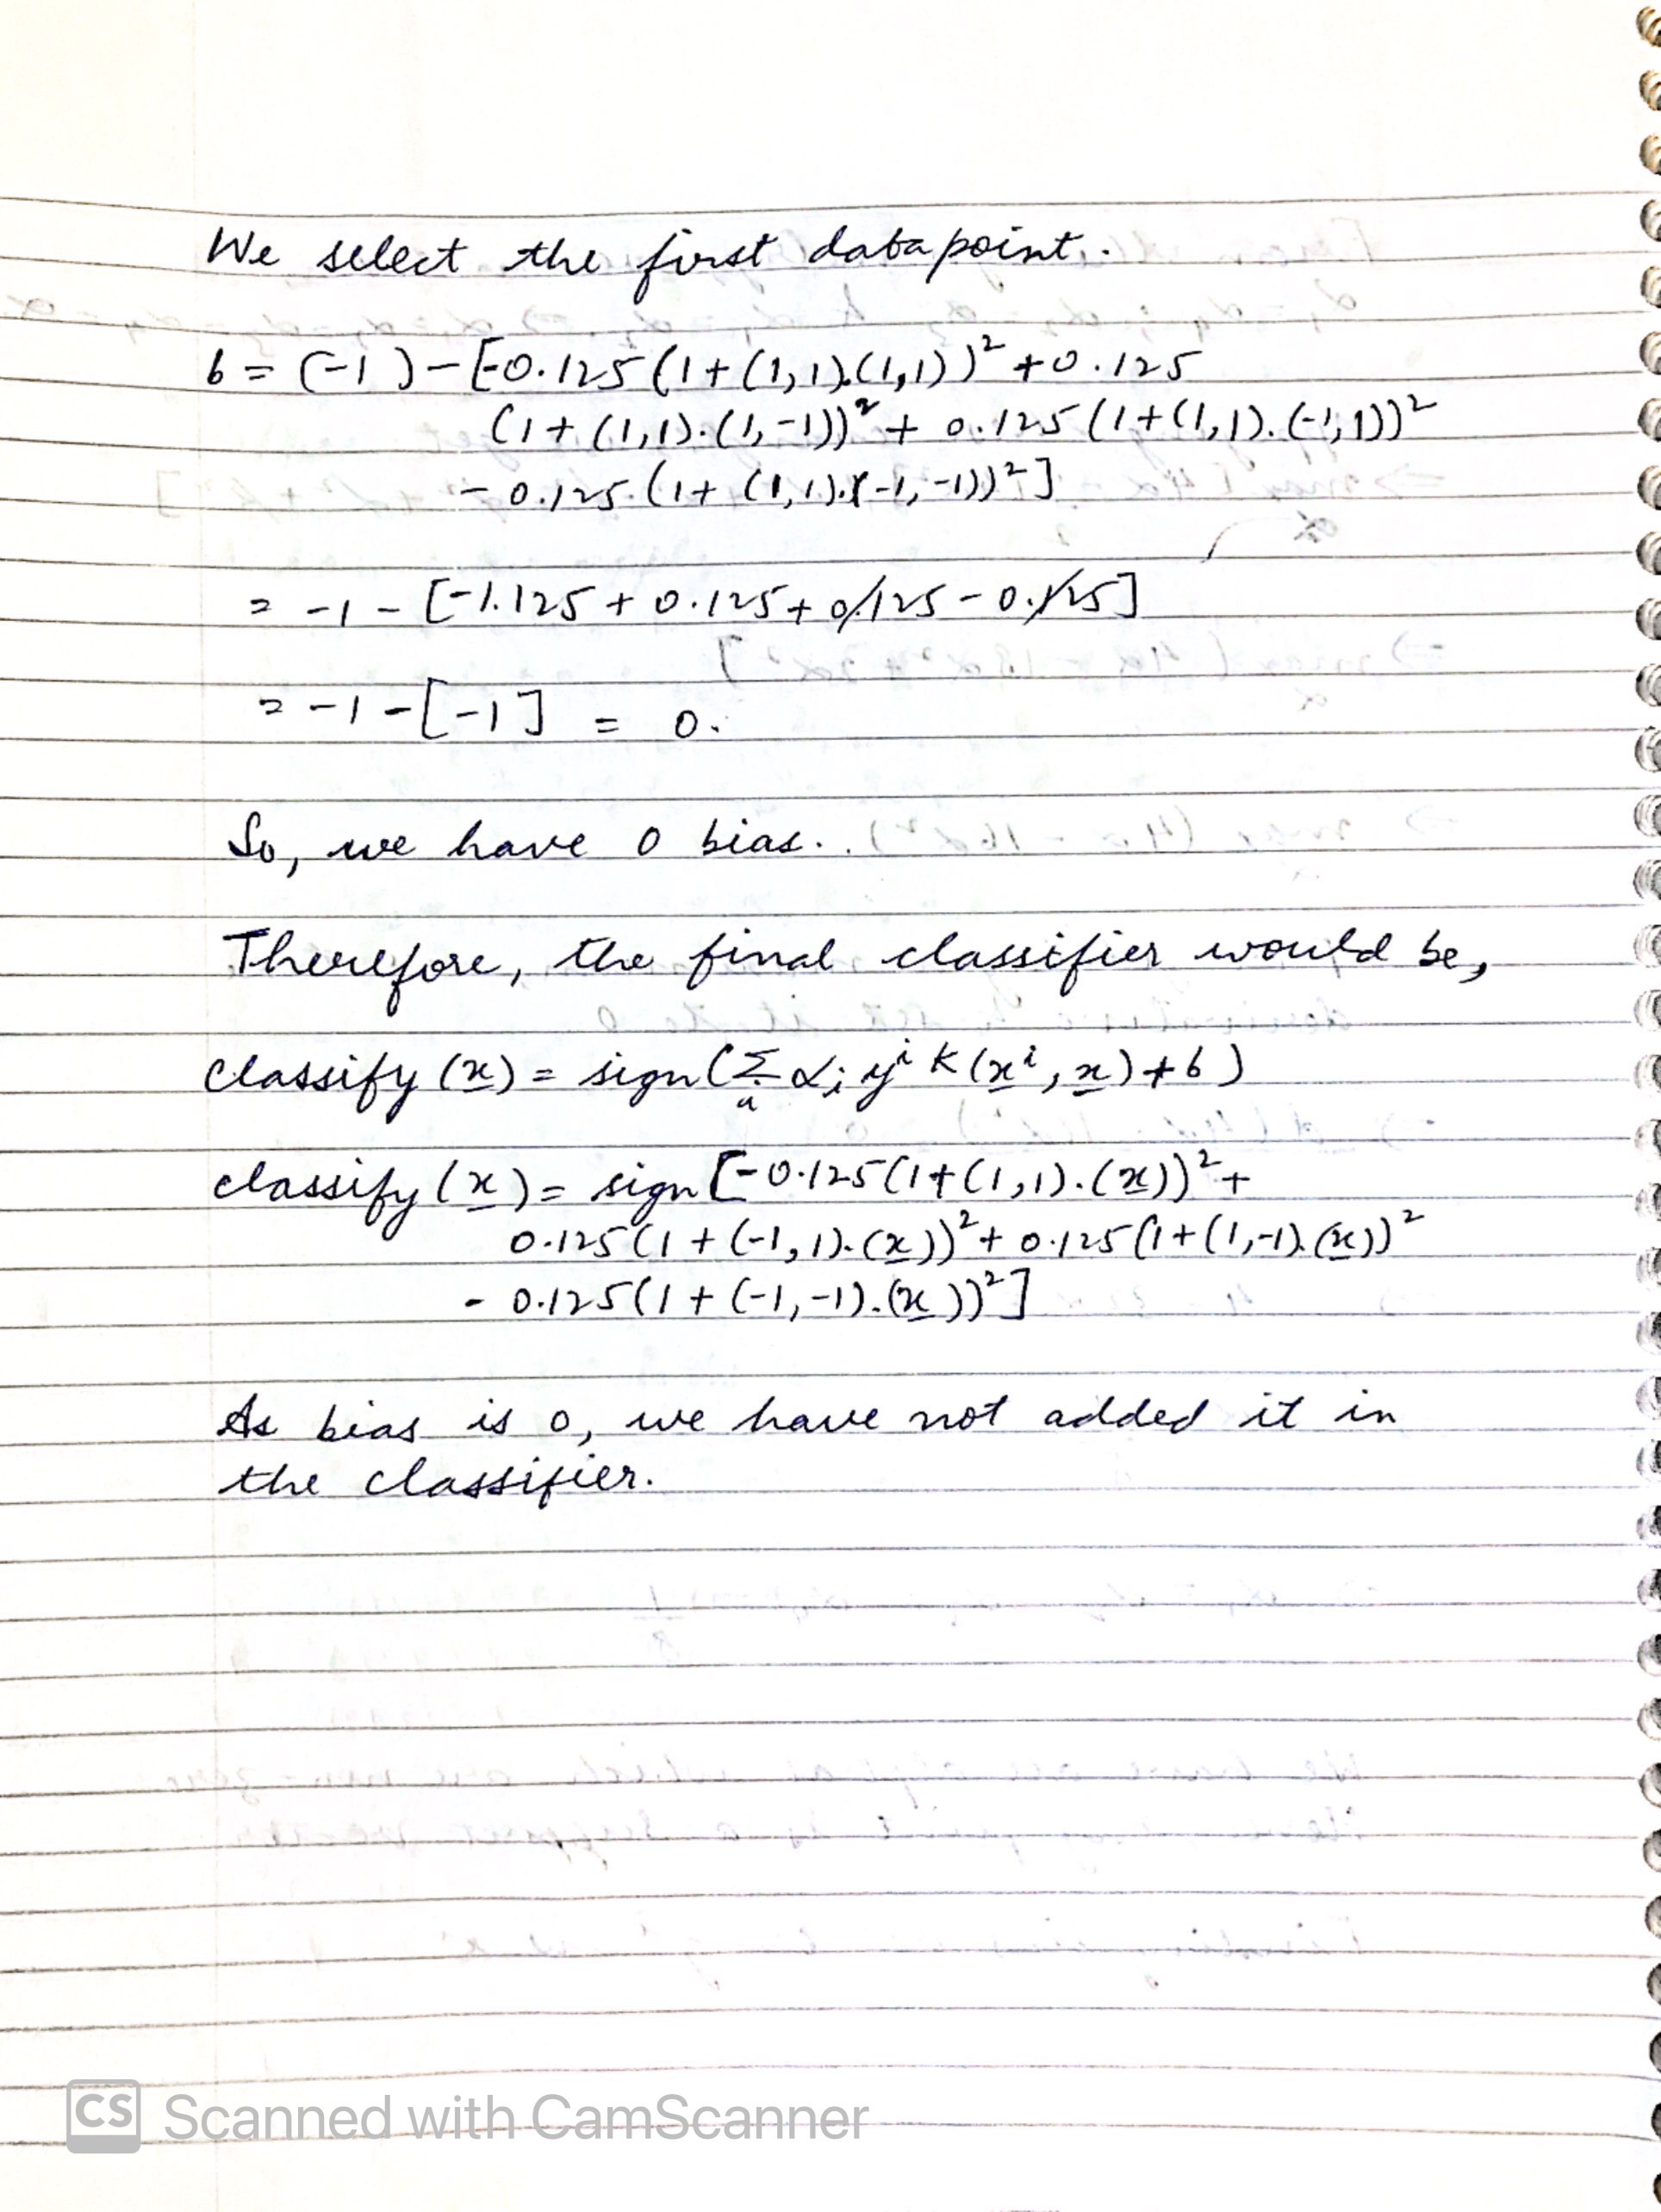 We select the first datapoint.
b = (-1) - [-0.125 (1 + (1,1).(1,1))² + 0.125
(1 + (1,1).(1,-1))² + 0.125 (1 + (1,1).(-1,1))²
- 0.125 (1 + (1,1).(-1,-1))²]
= -1 - [-1.125 + 0.125 + 0.125 - 0.125]
= -1 - [-1] = 0.
So, we have 0 bias.
Therefore, the final classifier would be,
classify (x) = sign (Σ αᵢ yⁱ K (xⁱ, x) + b)
classify (x) = sign [-0.125 (1 + (1,1).(x))² +
0.125 (1 + (-1,1).(x))² + 0.125 (1 + (1,-1).(x))²
- 0.125 (1 + (-1,-1).(x))²]
As bias is 0, we have not added it in
the classifier.
CS Scanned with CamScanner